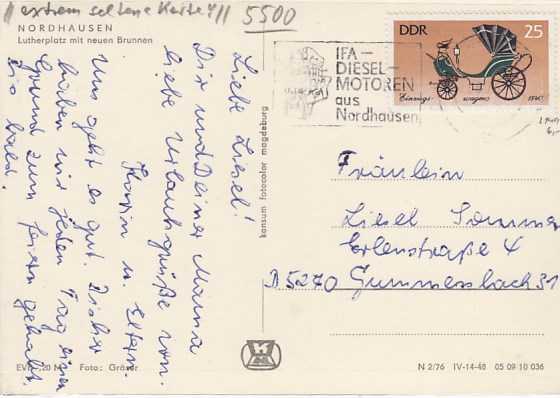 // extrem seltene Karte !! 5500
NORDHAUSEN
Lutherplatz mit neuen Brunnen
Liebe Liesel!
Dir und Deiner Mama
liebe Urlaubsgrüße von
Karin u. Eltern.
Uns geht es gut. Bisher
haben wir jeden Tag einen
Grund zum feiern gehabt.
Bis bald.
konsum fotocolor magdeburg
EVP -,20 M Foto: Gräser
IFA –
DIESEL-
MOTOREN
aus
Nordhausen
DDR 25
Einzugs- wagen 1840
Fräulein
Liesel Sommer
Erlenstraße 4
D 5270 Gummersbach 31
N 2/76 IV-14-48 05 09 10 036